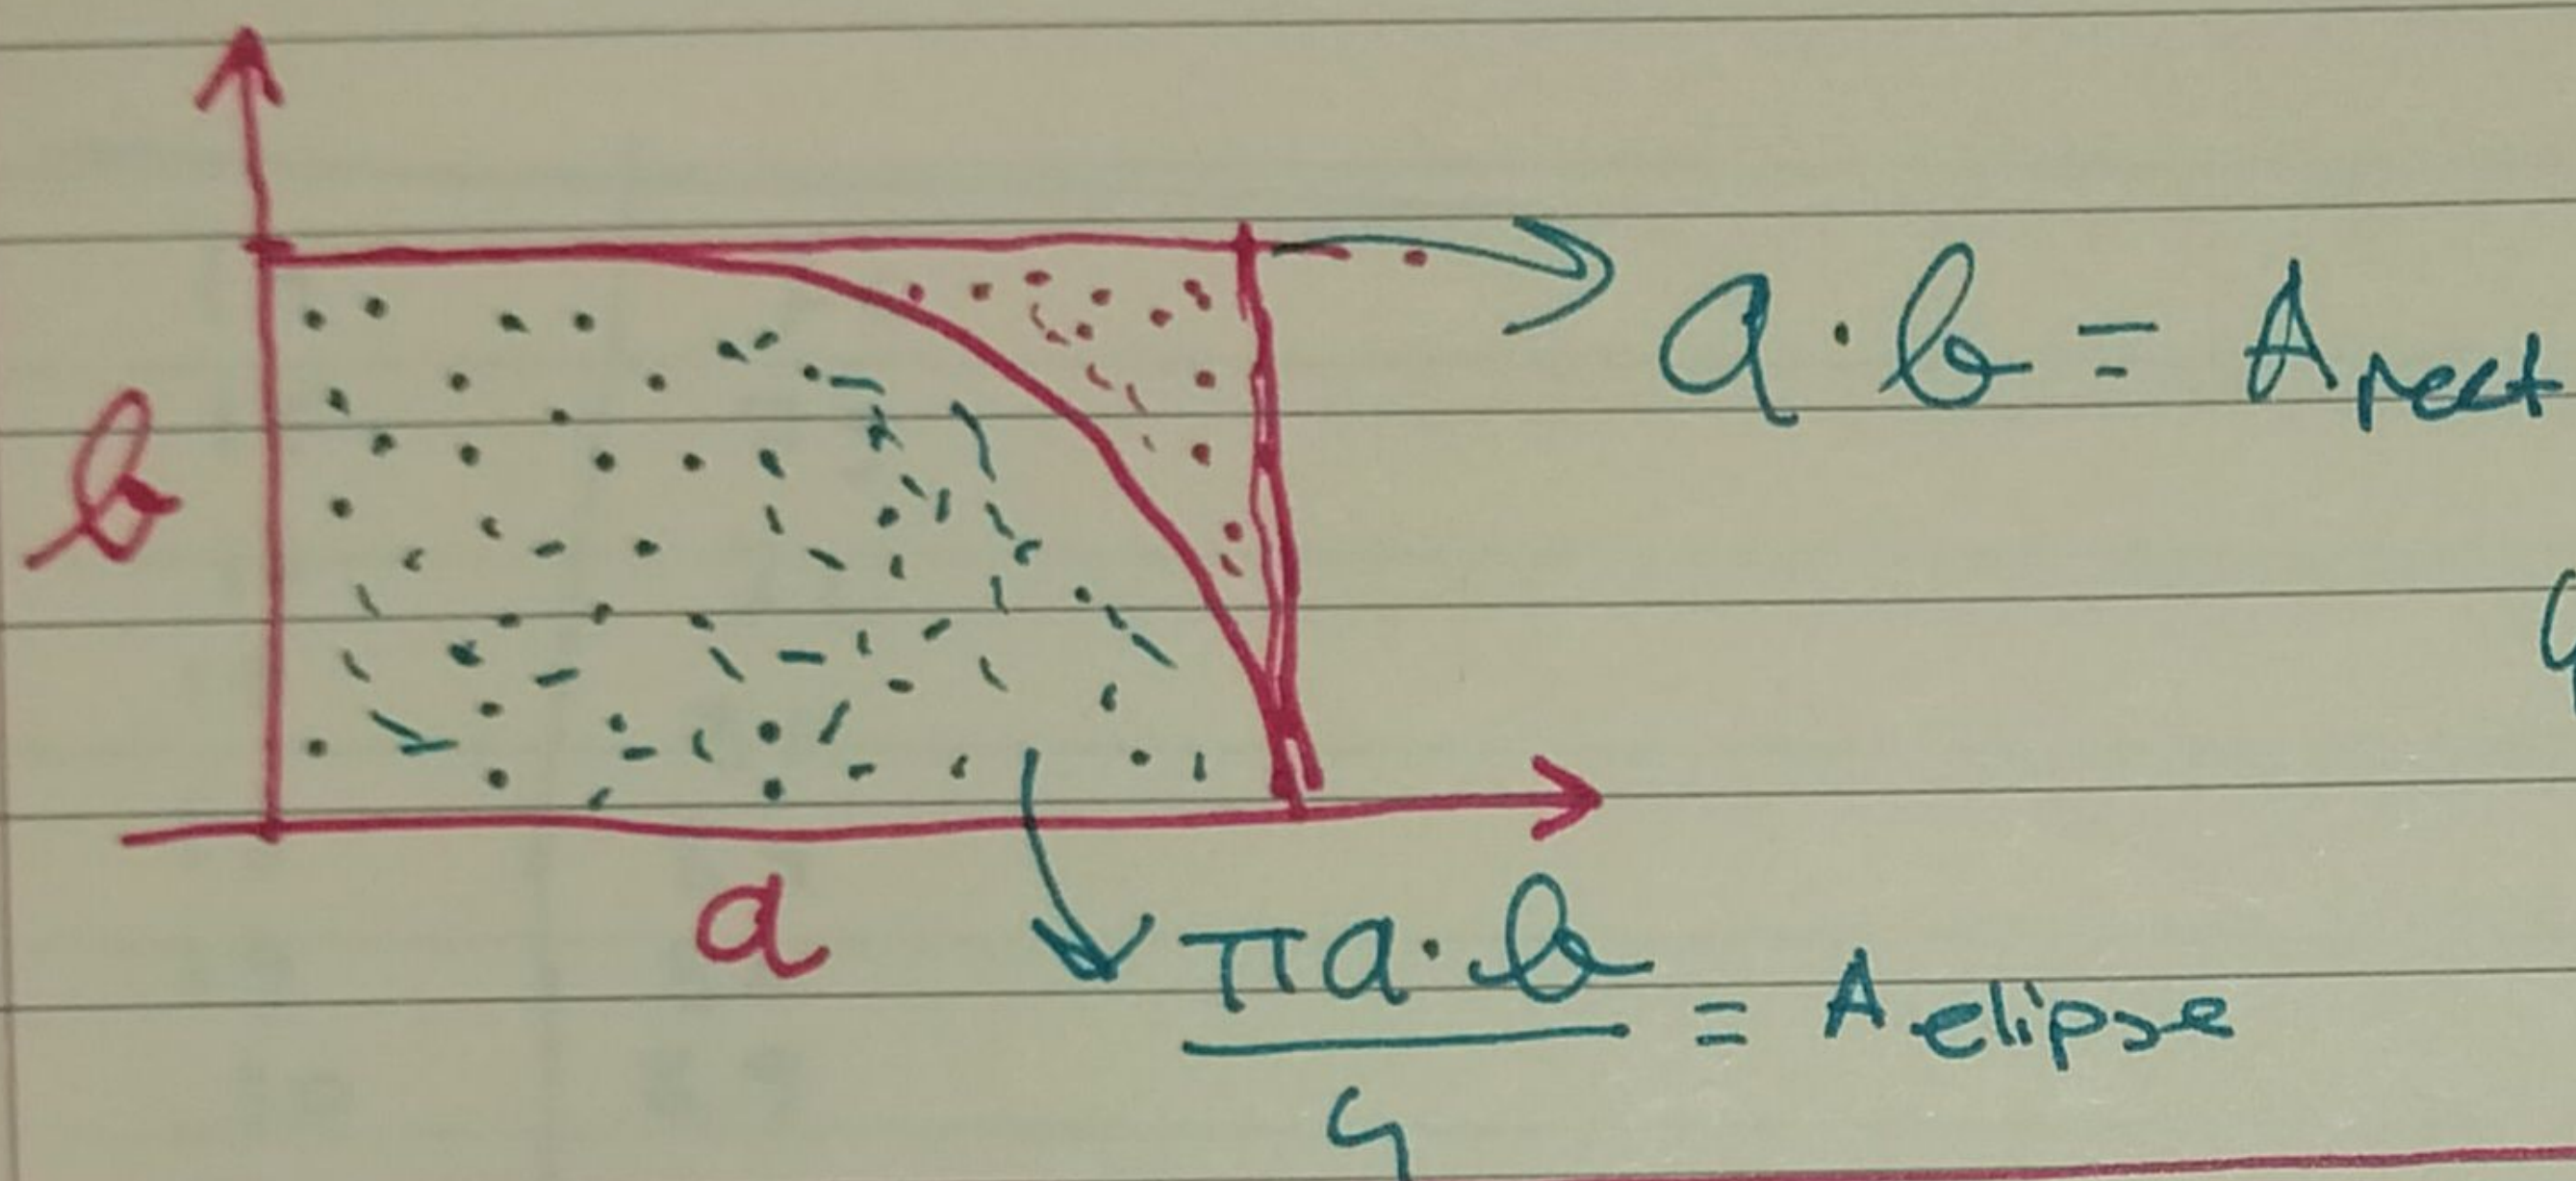 a · b = A rect
b
a
πa · b / 4 = A elipse